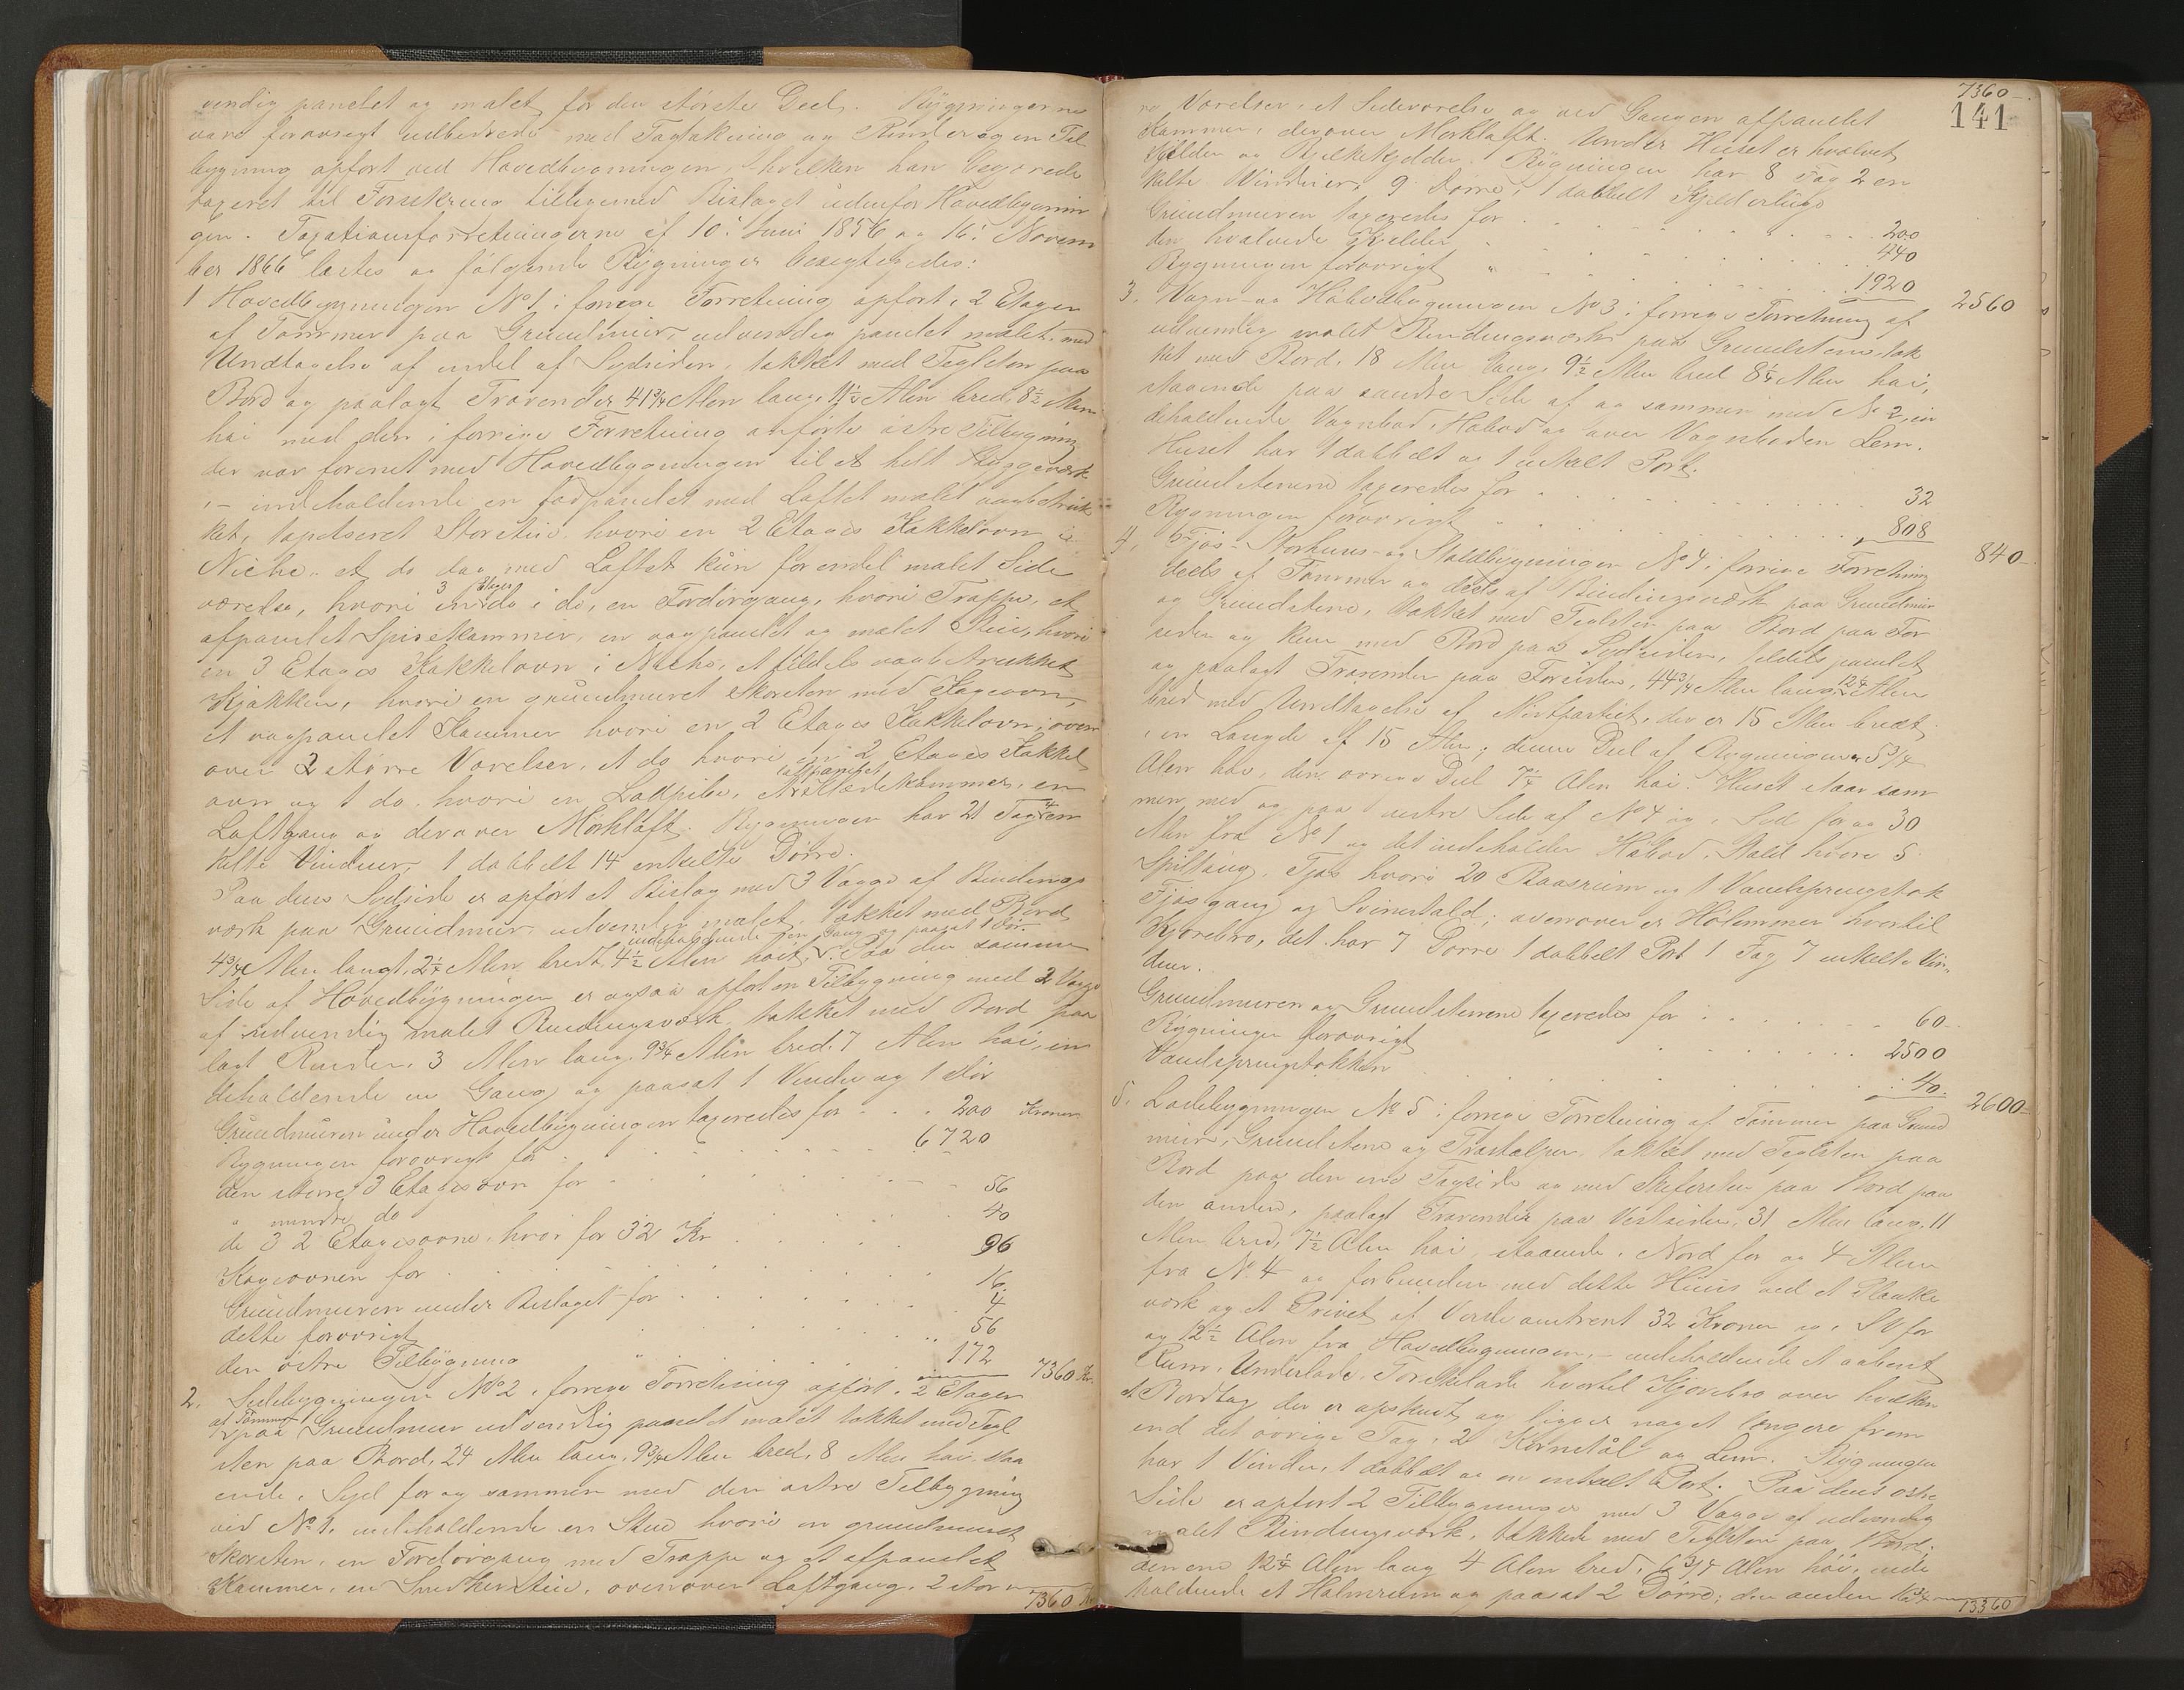 vendig panelet og malet for den største Deel. Bygningerne
vare forøvrigt udbedrede med Tagtækning og Render og en Til
bygning opført ved Hovedbygningen, hvilken han begjærede
taxeret til Forsikring tilligemed Bislaget udenfor Hovedbygnin
gen. Taxationsforretningerne af 10: Juni 1856 og 16: Novem
ber 1866 læstes og følgende Bygninger besigtigedes:
1 Hovedbygningen No 1 i forrige Forretning opført i 2 Etager
af Tømmer paa Grundmur, udvendig panelet malet med
Undtagelse af endel af Sydsiden, takket med Teglsten paa
Bord og paalagt Trærender 41 3/4 Alen lang, 11 1/2 Alen bred, 8 1/2 Alen
høi med den i forrige Forretning anførte østre Tilbygning
der var forenet med Hovedbygningen til et helt Byggeværk
, – indeholdende en forpanelet med Loftet malet vægbetruk
ket, tapetseret Storstue, hvori en 2 Etages Kakkelovn i
Niche, et do dog med Loftet kun for endel malet Side
værelse, hvori en 3 Etages do i do, en Fordørgang, hvori Trappe, et
afpanelet Spisekammer, en vægpanelet og malet Stue, hvori
en 3 Etages Kakkelovn i Niche, et tildels vægbetrukket
Kjøkken, hvori en grundmuret Skorsten med Kogeovn,
et vægpanelet Kammer hvori en 2 Etages Kakkelovn; oven
over 2 større Værelser, et do hvori en 2 Etages Kakkel
ovn og 1 do. hvori en Lodpibe, et afpanelet Klædekammer, en
Loftgang og derover Mørkloft. Bygningen har 21 Fag 4 en
kelte Vinduer, 1 dobbelt 14 enkelte Dørre.
Paa dens Sydside er opført et Bislag med 3 Vægge af Bindings
værk paa Grundmur udvendig malet, takket med Bord
4 3/4 Alen langt, 2 1/4 Alen bredt, 4 1/2 Alen høit, indeholdende en Gang og paasat 1 Dør. Paa den samme
Side af Hovedbygningen er ogsaa opført en Tilbygning med 2 Vægge
af udvendig malet Bindingsværk, takket med Bord paa
lagt Render, 3 Alen lang, 9 3/4 Alen bred, 7 Alen høi, in
deholdende en Gang og paasat 1 Vindu og 1 Dør
Grundmuren under Hovedbygningen taxeredes for . . . 200 Kroner
Bygningen forøvrigt for . . . 6720
den større 3 Etagesovn for . . . 56
" mindre do . . . 40
de 3 2 Etagesovne, hver for 32 Kr . . . 96
Kogeovnen for . . . 16
Grundmuren under Bislaget for . . . 4
dette forøvrigt . . . 56
den østre Tilbygning " . . . 172 7360 Kr.
2. Sidebygningen No 2 i forrige Forretning opført i 2 Etager
af Tømmer paa Grundmur udvendig panelet malet takket med Tegl
sten paa Bord, 24 Alen lang, 9 3/4 Alen bred, 8 Alen høi, staa
ende i Syd for og sammen med den østre Tilbygning
ved No 1, indeholdende en Stue hvori en grundmuret
Skorsten, en Fordørgang med Trappe og et afpanelet
Kammer, en Snedkerstue, ovenover Loftgang, 2 stør
7360 Kr
7360
141
re Værelser, et Sideværelse og ved Gangen afpanelet
Kammer, derover Mørkloft. Under Huset er hvælvet
Kjelder og Bjelkekjelder. Bygningen har 8 Fag 2 en
kelte Vinduer, 9 Dørre, 1 dobbelt Kjelderluge
Grundmuren taxeredes for . . . 200
den hvælvede Kjelder " . . . 440
Bygningen forøvrigt " . . . 1920 2560
3. Vogn- og Høbodbygningen No 3 i forrige Forretning af
udvendig malet Bindingsværk paa Grundstene, tak
ket med Bord, 18 Alen lang, 9 1/2 Alen bred 8 1/4 Alen høi,
staaende paa søndre Side af og sammen med No 2, in
deholdende Vognbod, Høbod og over Vognboden Lem.
Huset har 1 dobbelt og 1 enkelt Port.
Grundstenene taxeredes for . . . 32
Bygningen forøvrigt . . . 808 840
4. Fjøs- Storhuus- og Staldbygningen No 4 i forrige Forretning
deels af Tømmer og deels af Bindingsværk paa Grundmur
og Grundstene, takket med Teglsten paa Bord paa For
siden og kun med Bord paa Sydsiden, tildels panelet
og paalagt Trærender paa Forsiden, 44 3/4 Alen lang, 12 1/4 Alen
bred med Undtagelse af Nordpartiet, der er 15 Alen bredt
i en Længde af 15 Alen; denne Deel af Bygningen er 5 3/4
Alen høi, den øvrige Deel 7 1/4 Alen høi. Huset staar sam
men med og paa vestre Side af No 4 og i Syd for og 30
Alen fra No 1 og det indeholder Høbod, Stald hvori 5
Spiltoug, Fjøs hvori 20 Baasrum og 1 Vandspringstok
Fjøsgang og Svinestald; ovenover er Hølemmer hvortil
Kjørebro, det har 7 Dørre 1 dobbelt Port 1 Fag 7 enkelte Vin
duer.
Grundmuren og Grundstenene taxeredes for . . . 60
Bygningen forøvrigt . . . 2500
Vandspringstokken . . . 40. 2600
5. Ladebygningen No 5 i forrige Forretning af Tømmer paa Grund
mur, Grundstene og Træstolper takket med Teglsten paa
Bord paa den ene Tagside og med Skifersten paa Bord paa
den anden, paalagt Trærender paa Vestsiden, 31 Alen lang, 11
Alen bred, 7 1/2 Alen høi, staaende i Nord for og 4 Alen
fra No 4 og forbunden med dette Huus ved et Planke
værk og et Privet af Værdi omtrent 32 Kroner og i SV for
og 12 1/2 Alen fra Hovedbygningen, – indeholdende et aabent
Rum, Underlade, Treskelade hvortil Kjørebro over hvilken
et Bordtag der er opskudt og ligger noget længere frem
end det øvrige Tag, 2 Kornstål og Lem. Bygningen
har 1 Vindu, 1 dobbelt og en enkelt Port. Paa dens østre
Side er opført 2 Tilbygninger med 3 Vægge af udvendig
malet Bindingsværk, takkede med Teglsten paa Bord,
den ene 12 1/4 Alen lang 4 Alen bred, 6 3/4 Alen høi, inde
holdende et Halmrum og paasat 2 Dørre; den anden
13360